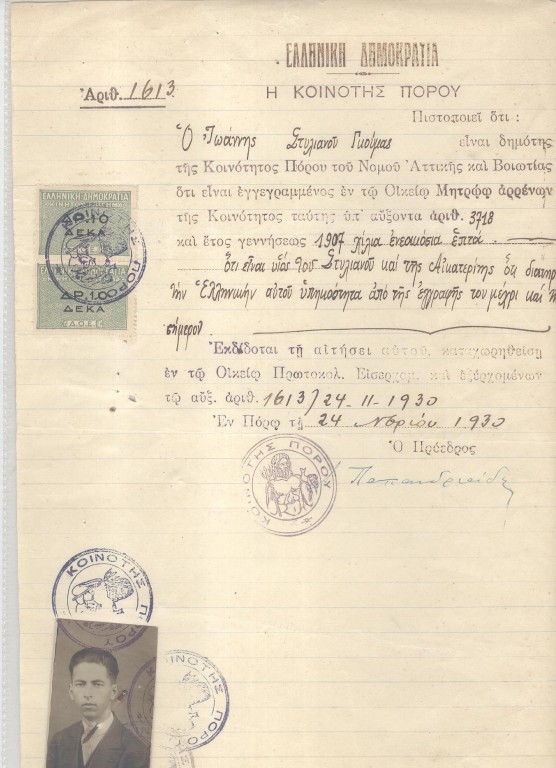 ΕΛΛΗΝΙΚΗ ΔΗΜΟΚΡΑΤΙΑ
Ἀριθ. 1613
Η ΚΟΙΝΟΤΗΣ ΠΟΡΟΥ
Πιστοποιεῖ ὅτι :
Ὁ Ἰωάννης Στυλιανοῦ Γκούμας εἶναι δημότης
τῆς Κοινότητος Πόρου τοῦ Νομοῦ Ἀττικῆς καὶ Βοιωτίας
ὅτι εἶναι ἐγγεγραμμένος ἐν τῷ Οἰκείῳ Μητρῴῳ ἀρρένων
τῆς Κοινότητος ταύτης ὑπ' αὔξοντα ἀριθ. 3718
καὶ ἔτος γεννήσεως 1907 χίλια ἐνεακόσια ἑπτά.
ὅτι εἶναι υἱός τοῦ Στυλιανοῦ καί τῆς Αἰκατερίνης
τήν Ἑλληνικήν αὐτοῦ ὑπηκοότητα ἀπό τῆς ἐγγραφῆς του μέχρι καί
σήμερον.
Ἐκδίδοται τῇ αἰτήσει αὐτοῦ, καταχωρηθεῖσῃ
ἐν τῷ Οἰκείῳ Πρωτοκολ. Εἰσερχομ. καὶ ἐξερχομένων
τῷ αὐξ. ἀριθ. 1613/24-11-1930
Ἐν Πόρῳ τῇ 24 Νβρίου 1930
Ὁ Πρόεδρος
ΕΛΛΗΝΙΚΗ ΔΗΜΟΚΡΑΤΙΑ
ΔΡ.10
ΔΕΚΑ
ΔΡ.10.0
ΔΕΚΑ
ΚΟΙΝΟΤΗΣ ΠΟΡΟΥ
ΚΟΙΝΟΤΗΣ ΠΟΡΟΥ
ΚΟΙΝΟΤΗΣ ΠΟΡΟΥ